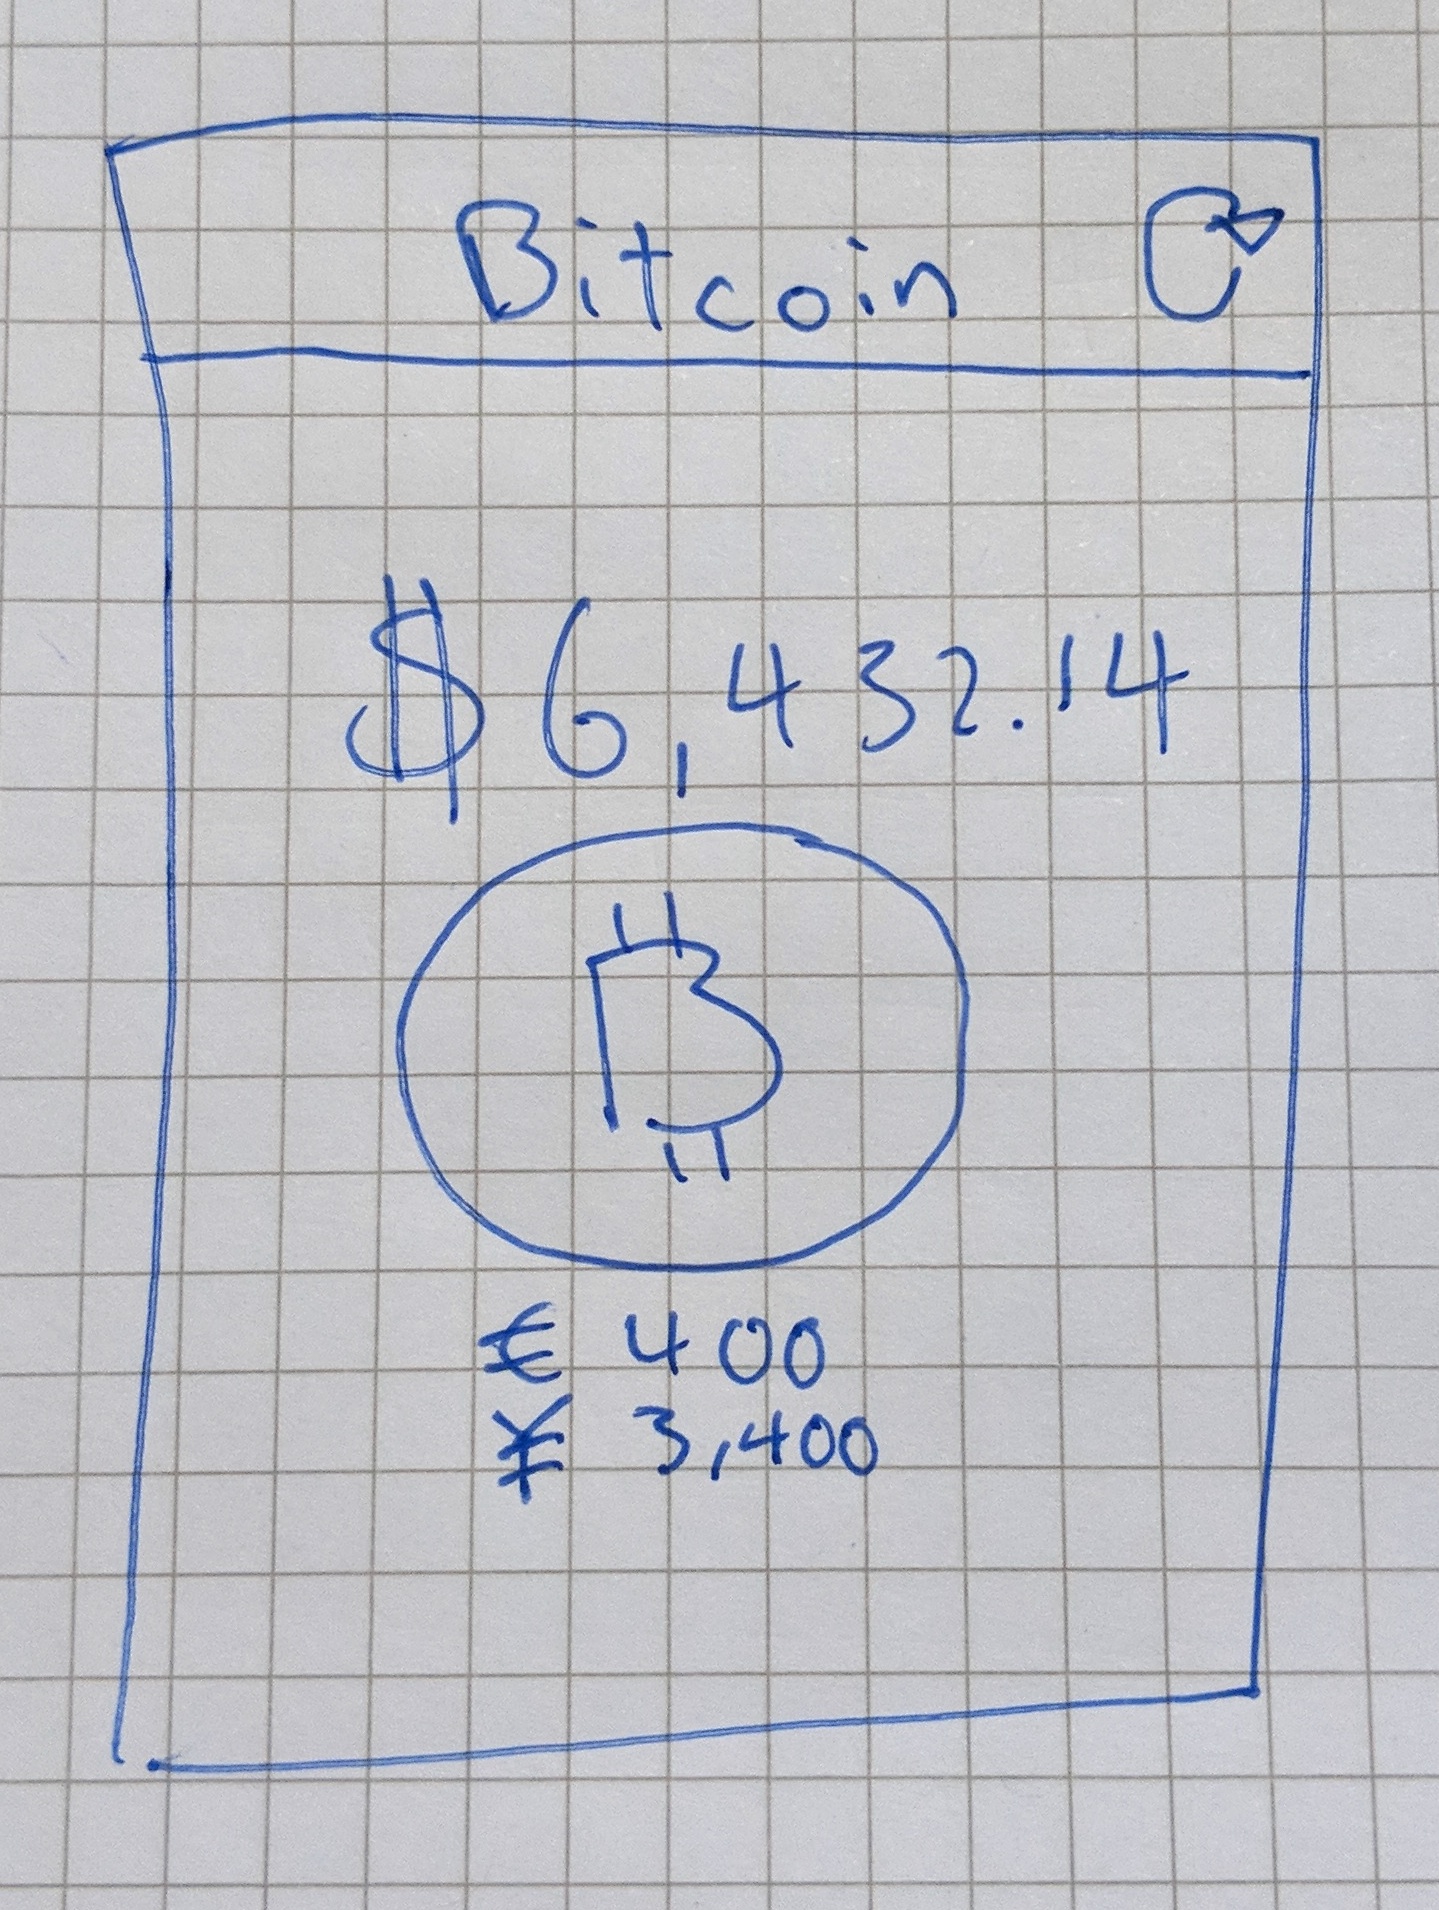 Bitcoin
$6,432.14
₿
€ 400
¥ 3,400